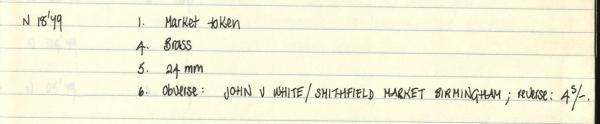 N 18'49 1. Market token
4. Brass
5. 24 mm
6. Obverse: JOHN V WHITE/SMITHFIELD MARKET BIRMINGHAM; reverse: 4S/-.